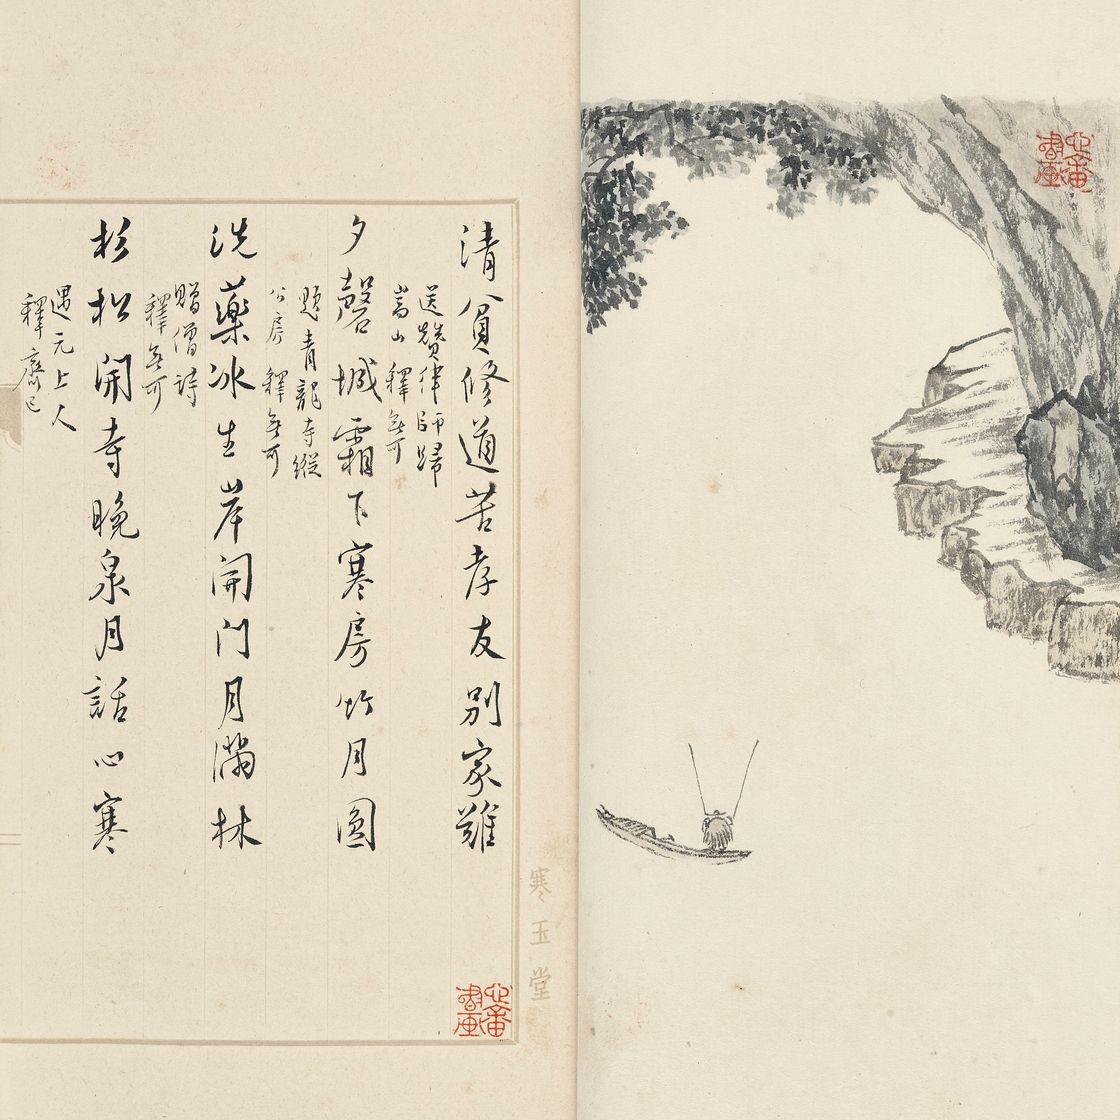 清貧修道苦孝友別家難
送贊律師歸
嵩山 釋無可
夕磬城霜下寒房竹月圓
題青龍寺縱
公房 釋無可
洗藥冰生岸開門月滿林
贈僧詩
釋無可
杉松開寺晚泉月話心寒
遇元上人
釋齊己
寒玉堂
心畬
書画
心畬
書画